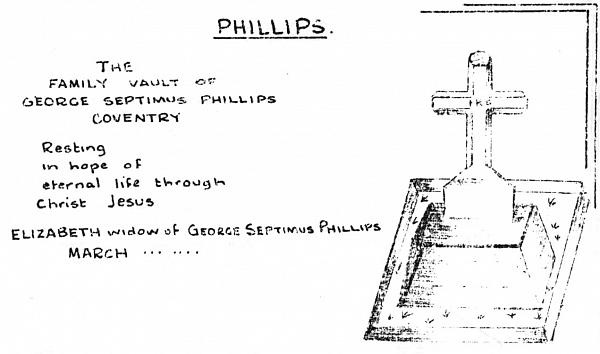 PHILLIPS.
THE
FAMILY VAULT OF
GEORGE SEPTIMUS PHILLIPS
COVENTRY
Resting
in hope of
eternal life through
Christ Jesus
ELIZABETH widow of GEORGE SEPTIMUS PHILLIPS
MARCH ... ....